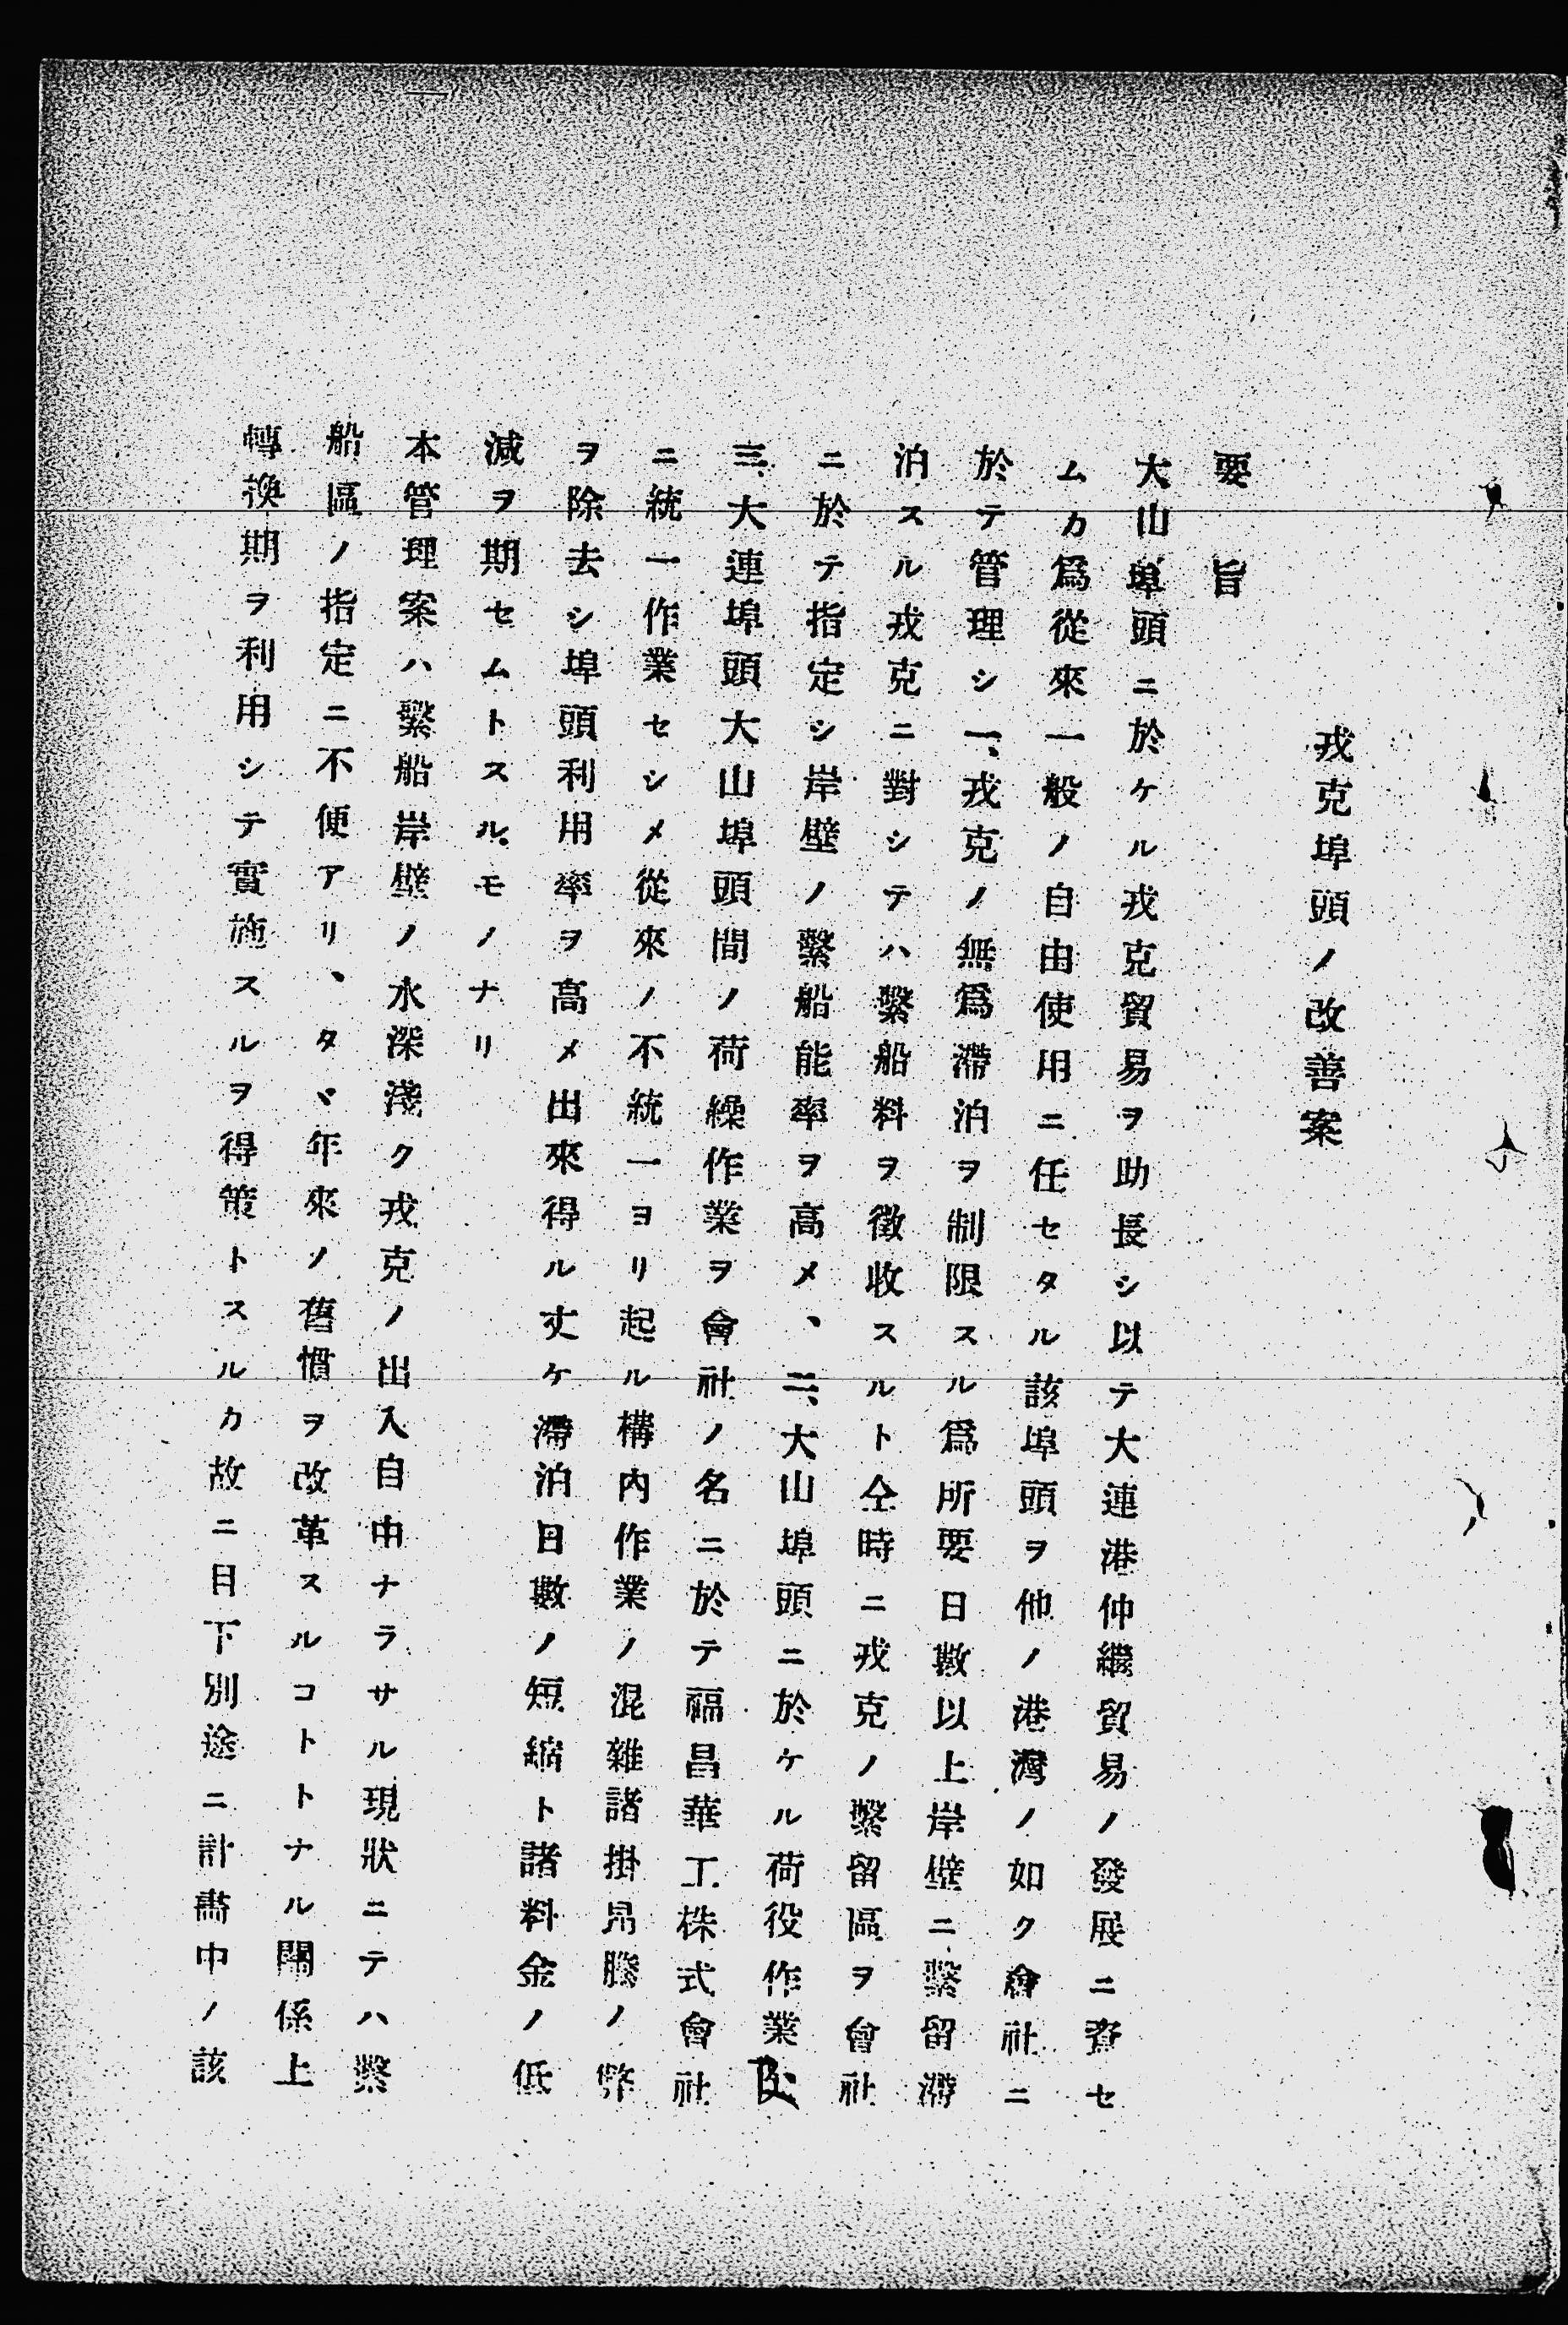 戎克埠頭ノ改善案
要旨
大山埠頭ニ於ケル戎克貿易ヲ助長シ以テ大連港仲繼貿易ノ發展ニ資セ
ムカ爲從來一般ノ自由使用ニ任セタル該埠頭ヲ他ノ港灣ノ如ク會社ニ
於テ管理シ一、戎克ノ無爲滯泊ヲ制限スル爲所要日數以上岸壁ニ繫留滯
泊スル戎克ニ對シテハ繫船料ヲ徵收スルト仝時ニ戎克ノ繫留區ヲ會社
ニ於テ指定シ岸壁ノ繫船能率ヲ高メ、二、大山埠頭ニ於ケル荷役作業及
三、大連埠頭大山埠頭間ノ荷繰作業ヲ會社ノ名ニ於テ福昌華工株式會社
ニ統一作業セシメ從來ノ不統一ヨリ起ル構内作業ノ混雜諸掛昂騰ノ弊
ヲ除去シ埠頭利用率ヲ高メ出來得ル丈ケ滯泊日數ノ短縮ト諸料金ノ低
減ヲ期セムトスル、モノナリ
本管理案ハ繫船岸壁ノ水深淺ク戎克ノ出入自由ナラサル現狀ニテハ繫
船區ノ指定ニ不便アリ、タヾ年來ノ舊慣ヲ改革スルコトトナル關係上
轉換期ヲ利用シテ實施スルヲ得策トスルカ故ニ目下別途ニ計畵中ノ該